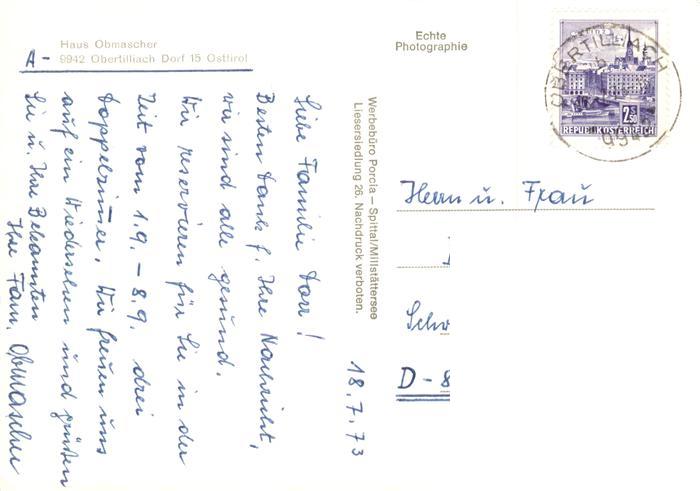 Haus Obmascher
A - 9942 Obertilliach Dorf 15 Osttirol
Echte
Photographie
OBERTILLIACH
994
2.50
REPUBLIK ÖSTERREICH
18.7.73
Liebe Familie !
Besten Dank f. Ihre Nachricht,
wir sind alle gesund.
Wir reservieren für Sie in der
Zeit vom 1.9. – 8.9. drei
Doppelzimmer. Wir freuen uns
auf ein Wiedersehen und grüßen
Sie u. Ihre Bekannten
Ihre Fam. Obmascher
Werbebüro Porcia – Spittal/Millstättersee
Liesersiedlung 26. Nachdruck verboten.
Herrn u. Frau
Schw
D - 8